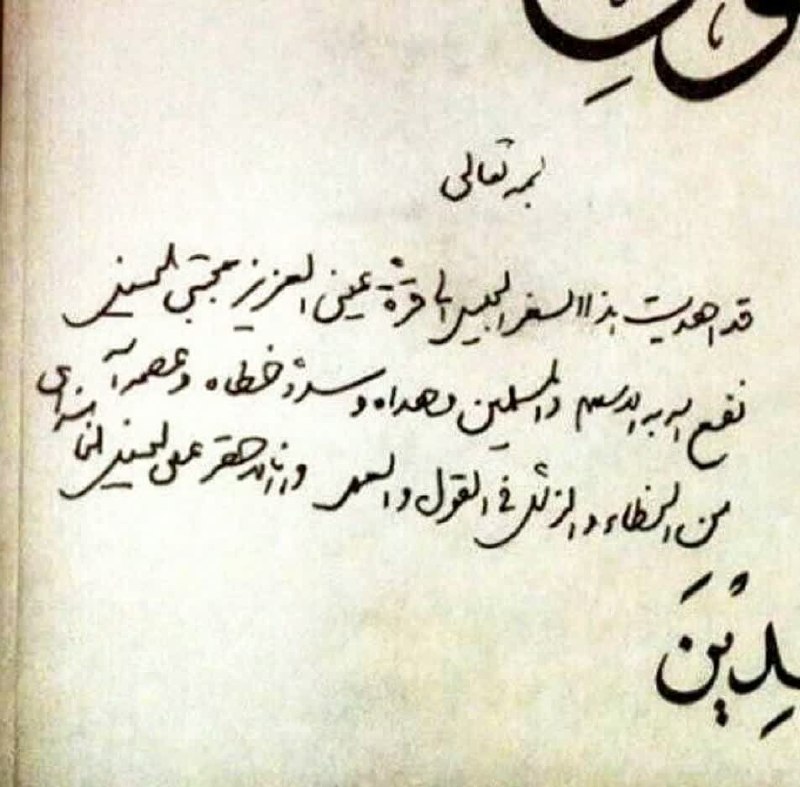 بسمه تعالی
قد اهدیت هذا السفر الجلیل الی قرة عینی العزیز مجتبی الحسینی
نفع الله به الاسلام والمسلمین وهداه وسدد خطاه وعصمه الله
من الخطاء والزلل فی القول والعمل وانا الاحقر علی الحسینی الخامنه‌ای
لِدِیْنَ